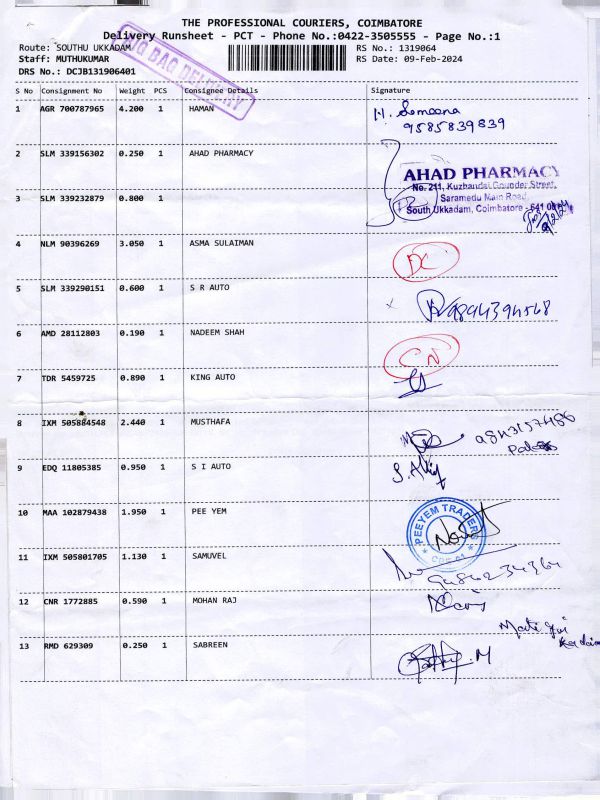 THE PROFESSIONAL COURIERS, COIMBATORE
Delivery Runsheet - PCT - Phone No.:0422-3505555 - Page No.:1
Route: SOUTHU UKKADAM
RS No.: 1319064
Staff: MUTHUKUMAR
RS Date: 09-Feb-2024
DRS No.: DCJB131906401
BIG BAG DELIVERY
S No Consignment No Weight PCS Consignee Details Signature
1 AGR 700787965 4.200 1 HAMAN
H. Semeena
9585839839
2 SLM 339156302 0.250 1 AHAD PHARMACY
AHAD PHARMACY
No. 211, Kuzhandai Gounder Street,
Saramedu Main Road,
South Ukkadam, Coimbatore - 641
3 SLM 339232879 0.800 1
4 NLM 90396269 3.050 1 ASMA SULAIMAN
DC
5 SLM 339290151 0.600 1 S R AUTO
6 AMD 28112803 0.190 1 NADEEM SHAH
CN
7 TDR 5459725 0.890 1 KING AUTO
8 IXM 505884548 2.440 1 MUSTHAFA
9843157486
9 EDQ 11805385 0.950 1 S I AUTO
10 MAA 102879438 1.950 1 PEE YEM
PEEYEM TRADERS
11 IXM 505801705 1.130 1 SAMUVEL
9486234364
12 CNR 1772885 0.590 1 MOHAN RAJ
13 RMD 629309 0.250 1 SABREEN